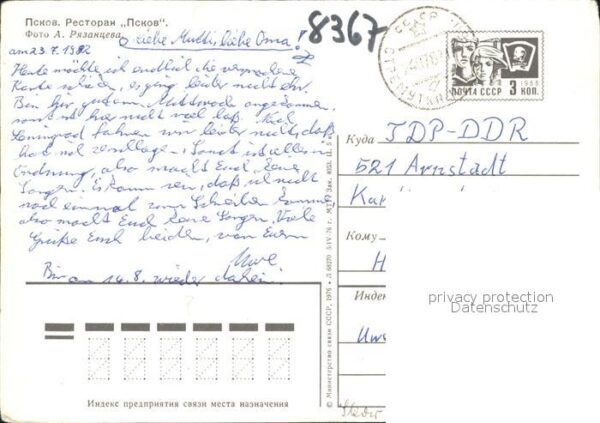 Псков. Ресторан „Псков".
Фото А. Рязанцева
8367
am 23.7.1982
Liebe Mutti, liebe Oma!
Heute möchte ich endlich die versprochene
Karte schicken, es ging leider nicht ehr.
Bin hier gut am Mittwoch angekommen,
sonst ist hier nicht viel los. Nach
Leningrad fahren wir leider nicht, daß
hat viel . Sonst ist alles in
Ordnung, also macht Euch keine
Sorgen. Es kann sein, daß ich nicht
noch einmal zum Schreiben komme,
also macht Euch keine Sorgen. Viele
Grüße Euch beiden, von Euern
Uwe.
Bin am 14.8. wieder daheim.
ПОЧТА СССР 3 КОП.
1966
Куда TDP-DDR
521 Arnstadt
Кому
H
Индекс
Uwe
© Министерство связи СССР, 1976
Л 68270 5/IV-76 г. МТГ Зак. 4053 Ц. 5 к.
Индекс предприятия связи места назначения
privacy protection
Datenschutz